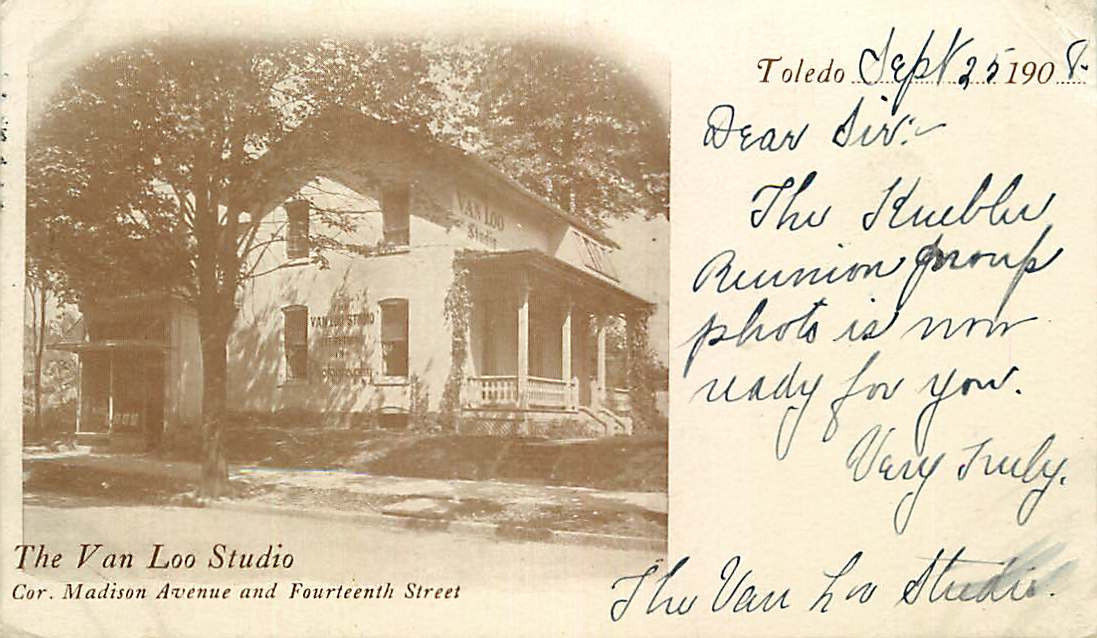 Toledo Sept 25 1908.
Dear Sir:-
The Kuebler
Reunion group
photo is now
ready for you.
Very truly,
The Van Loo Studio.
VAN LOO
Studio
VAN LOO STUDIO
The Van Loo Studio
Cor. Madison Avenue and Fourteenth Street